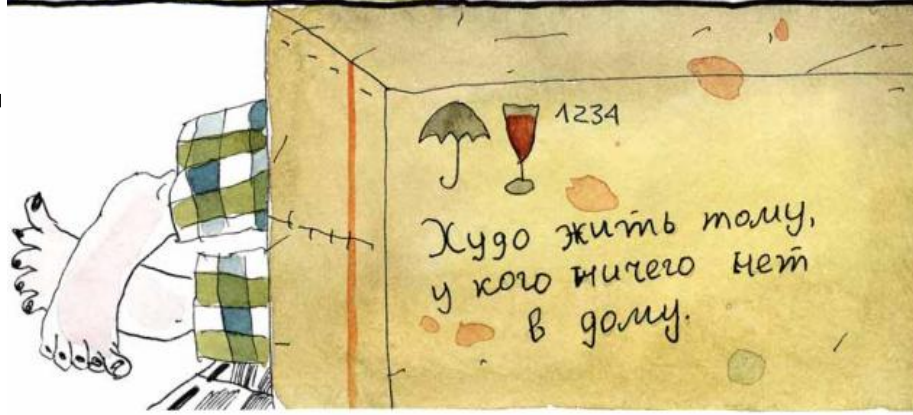 1234
Худо жить тому,
у кого ничего нет
в дому.